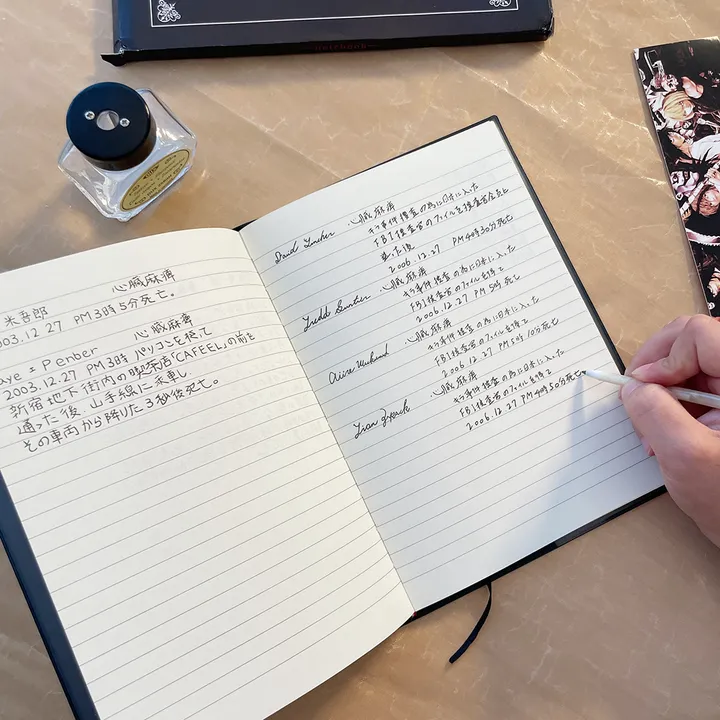 Notebook
心臓麻痺
米吾郎
003.12.27 PM3時5分死亡。
心臓麻痺
aye = Penber
2003.12.27 PM3時 パソコンを
新宿地下街内の喫茶店「CAFEEL」の前を
通った後、山手線に乗車し
その車両から降りた3秒後死亡。
心臓麻痺
キラ事件捜査の為に日本に入った
FBI捜査官のファイルを
見た後
2006.12.27 PM4時30分死亡
心臓麻痺
キラ事件捜査の為に日本に入った
FBI捜査官のファイルを得て
2006.12.27 PM5時 死亡
心臓麻痺
キラ事件捜査の為に日本に入った
FBI捜査官のファイルを得て
2006.12.27 PM5時10分死亡
心臓麻痺
キラ事件捜査の為に日本に入った
FBI捜査官のファイルを得て
2006.12.27 PM4時50分死亡